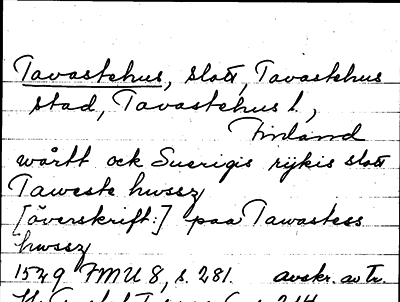 Tavastehus, slott, Tavastehus
stad, Tavastehus l.,
Finland
wårtt ock Suerigis rijkis slott
Taweste hwssz
[överskrift:] paa Tawastess
hwssz
1529 FMU 8, s. 281. avskr. av tr.